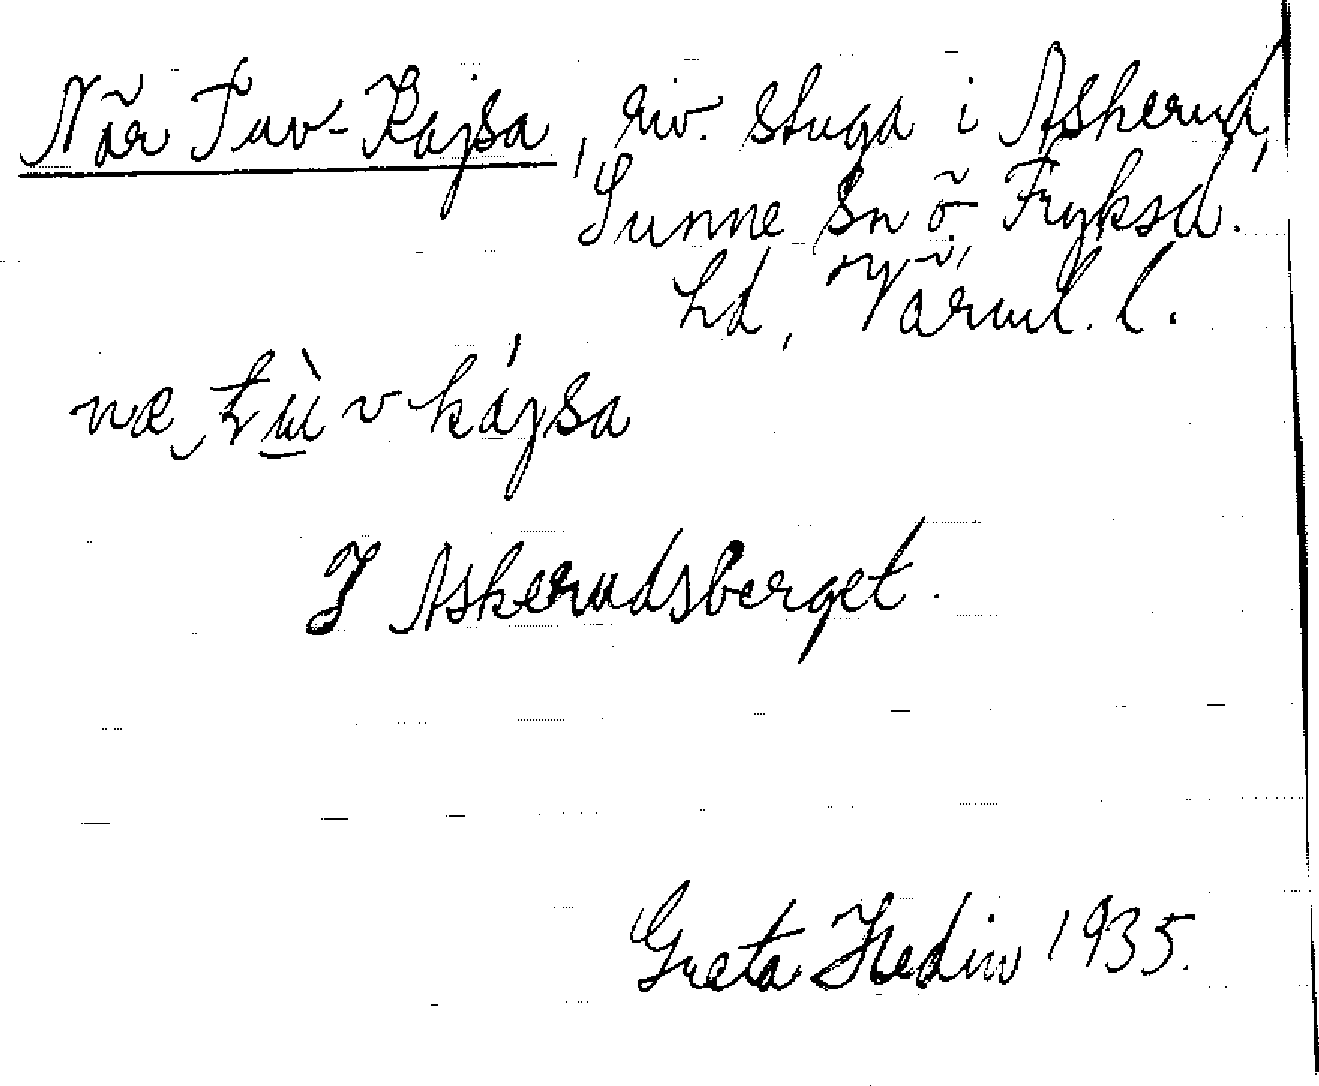 När Tuv-Kajsa, riv. stuga i Askerud,
Sunne sn ö. Fryksd.
hd, Värml. l.
næ tùv kájsa
I Askerudsberget.
Greta Hedin 1935.